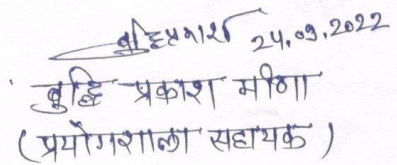 बुद्धिप्रकाश 24.09.2022
बुद्धि प्रकाश मीणा
(प्रयोगशाला सहायक)